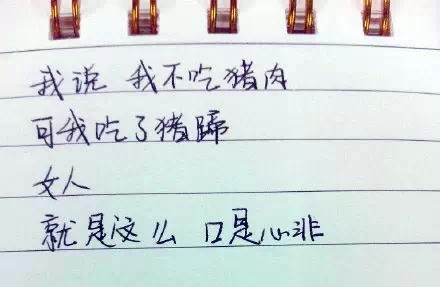 我说 我不吃猪肉
可我吃了猪蹄
女人
就是这么 口是心非